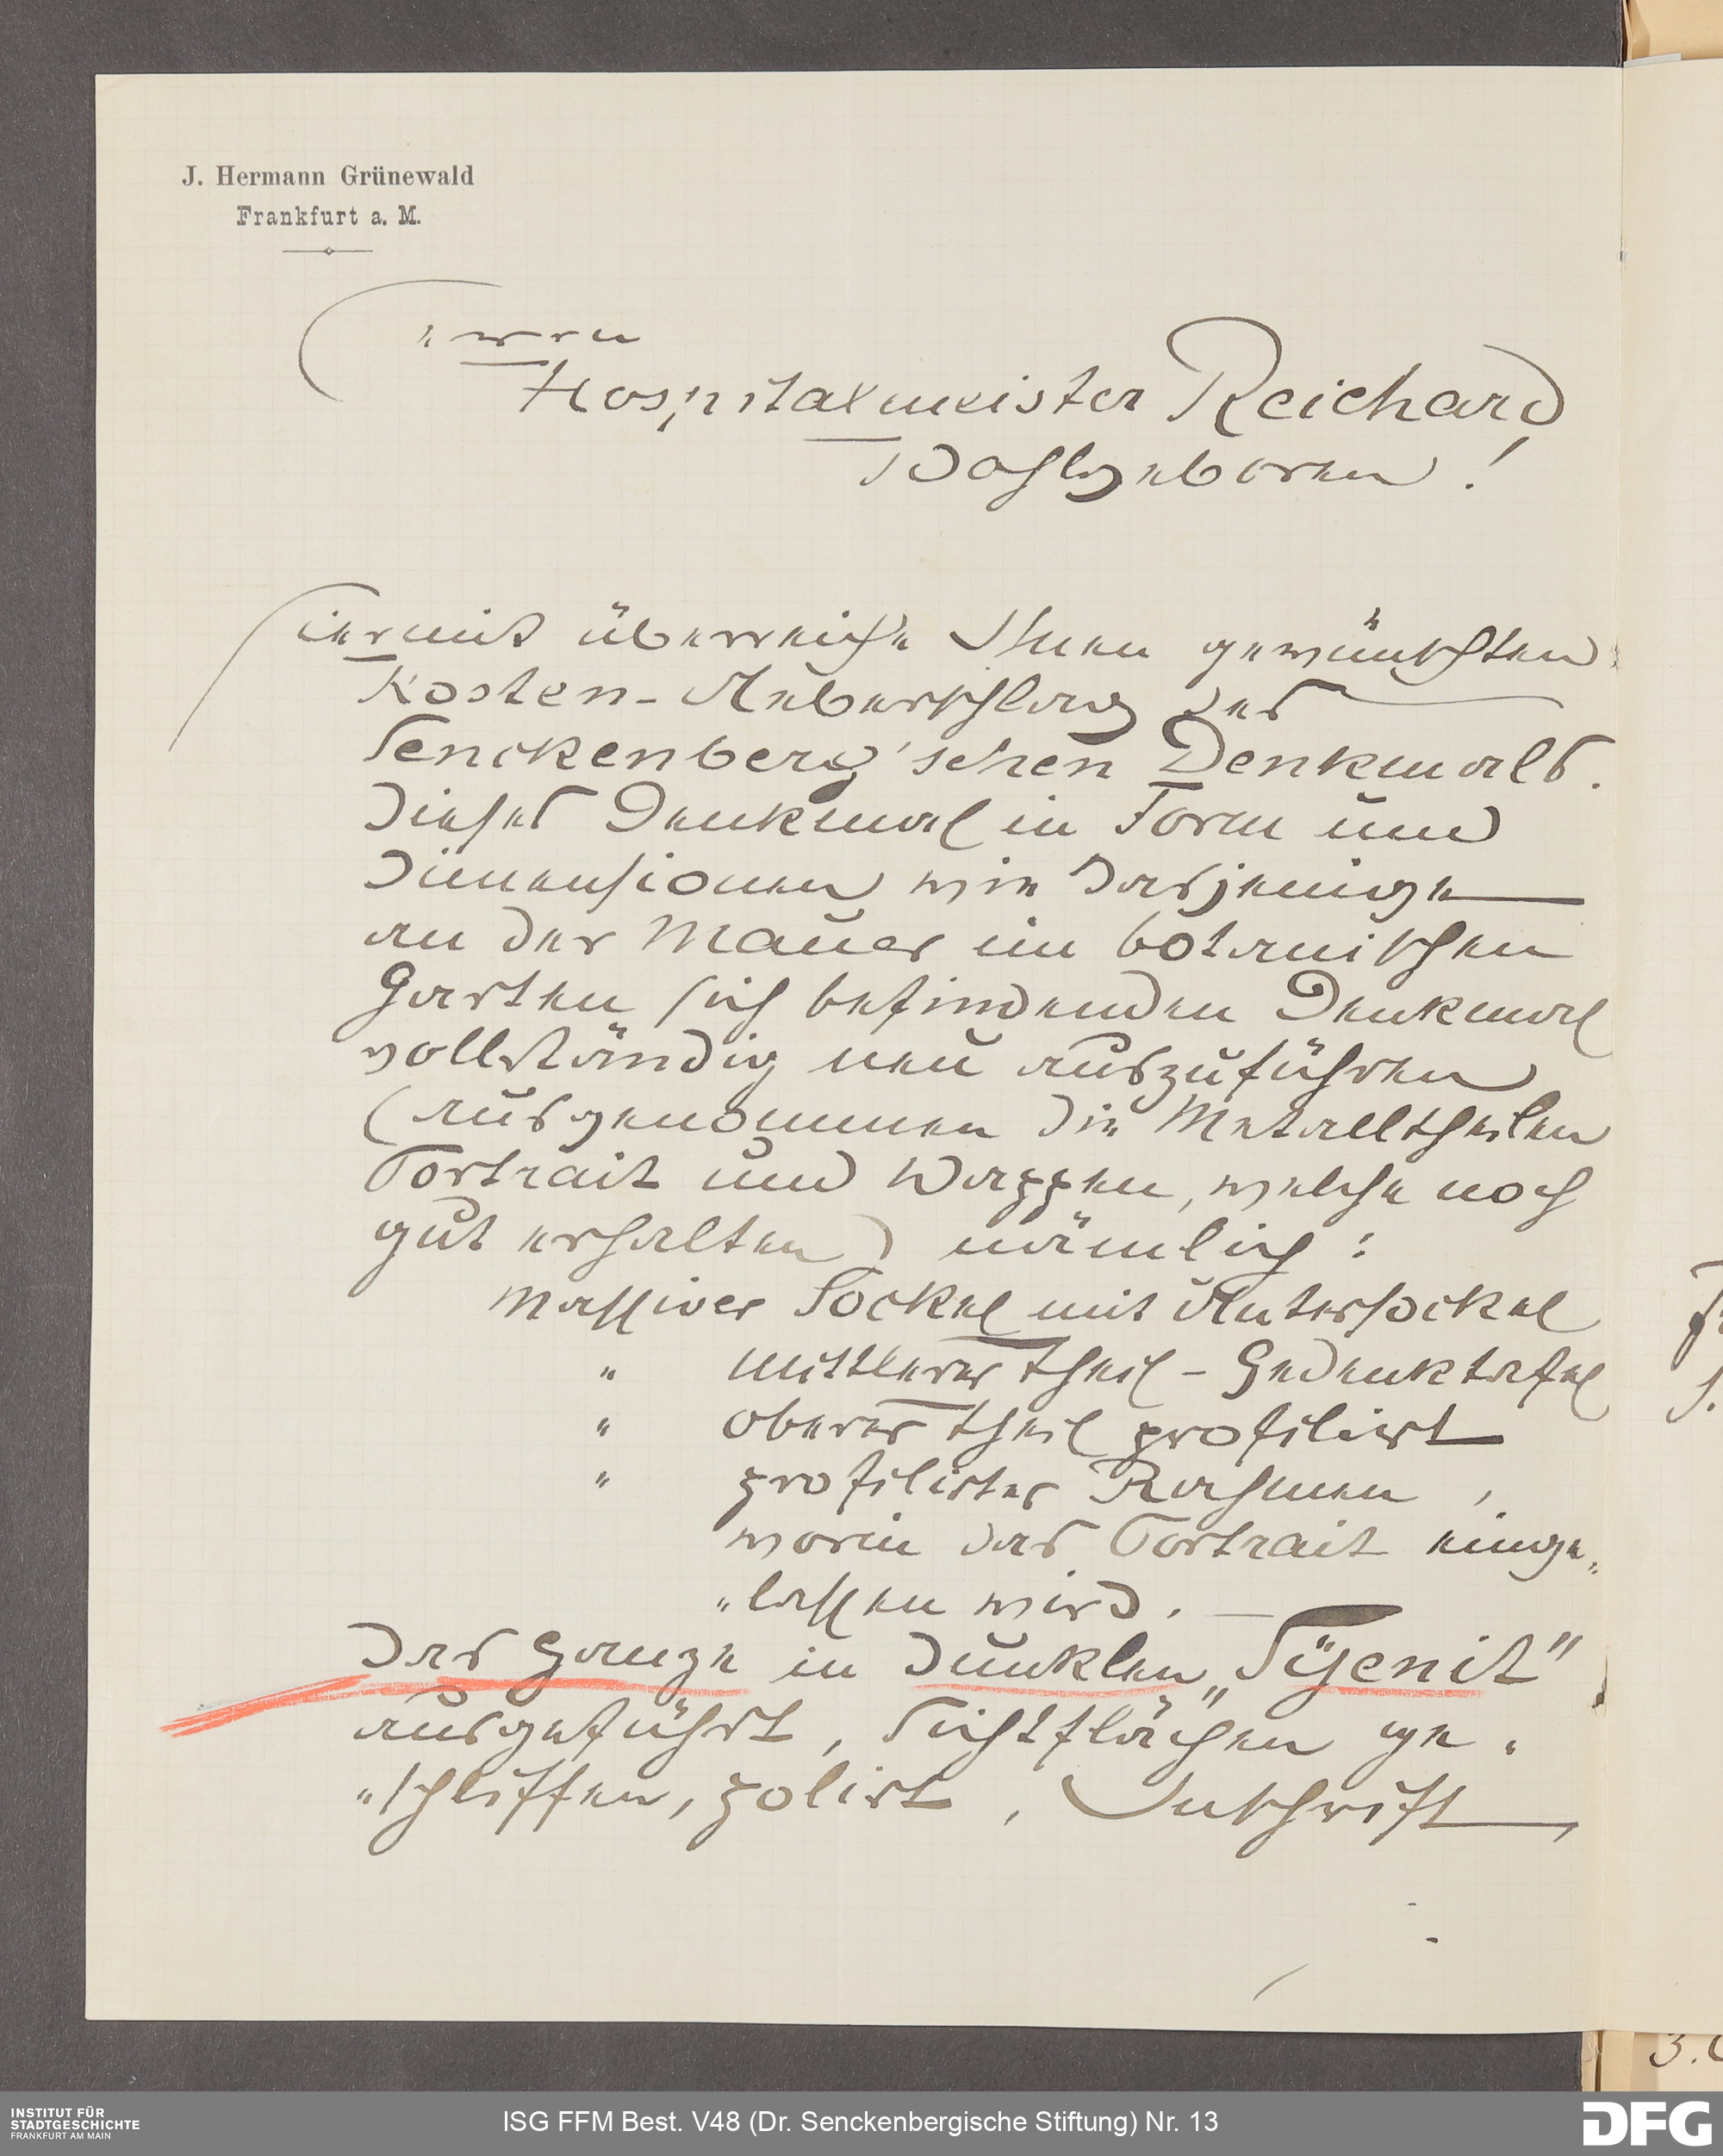 J. Hermann Grünewald
Frankfurt a. M.
Herrn
Hospitalmeister Reichard
Wohlgeboren!
Hiermit überreiche Ihnen gewünschten
Kosten-Ueberschlag des
Senckenberg'schen Denkmals.
Dieses Denkmal in Form und
Dimensionen wie dasjenige
an der Mauer im botanischen
Garten sich befindenden Denkmal
vollständig neu auszuführen
(ausgenommen die Metalltheilen
Portrait und Wappen, welche noch
gut erhalten) nämlich:
Massiver Sockel mit Untersockel
" mittlerer Theil - Gedenktafel
" oberer Theil profilirt
" profilirter Rahmen,
worin das Portrait einge„
„lassen wird. —
Das Ganze in dunklen „Syenit"
ausgeführt, Sichtflächen ge„
„schliffen, polirt, Inschrift
3.
INSTITUT FÜR
STADTGESCHICHTE
FRANKFURT AM MAIN
ISG FFM Best. V48 (Dr. Senckenbergische Stiftung) Nr. 13
DFG